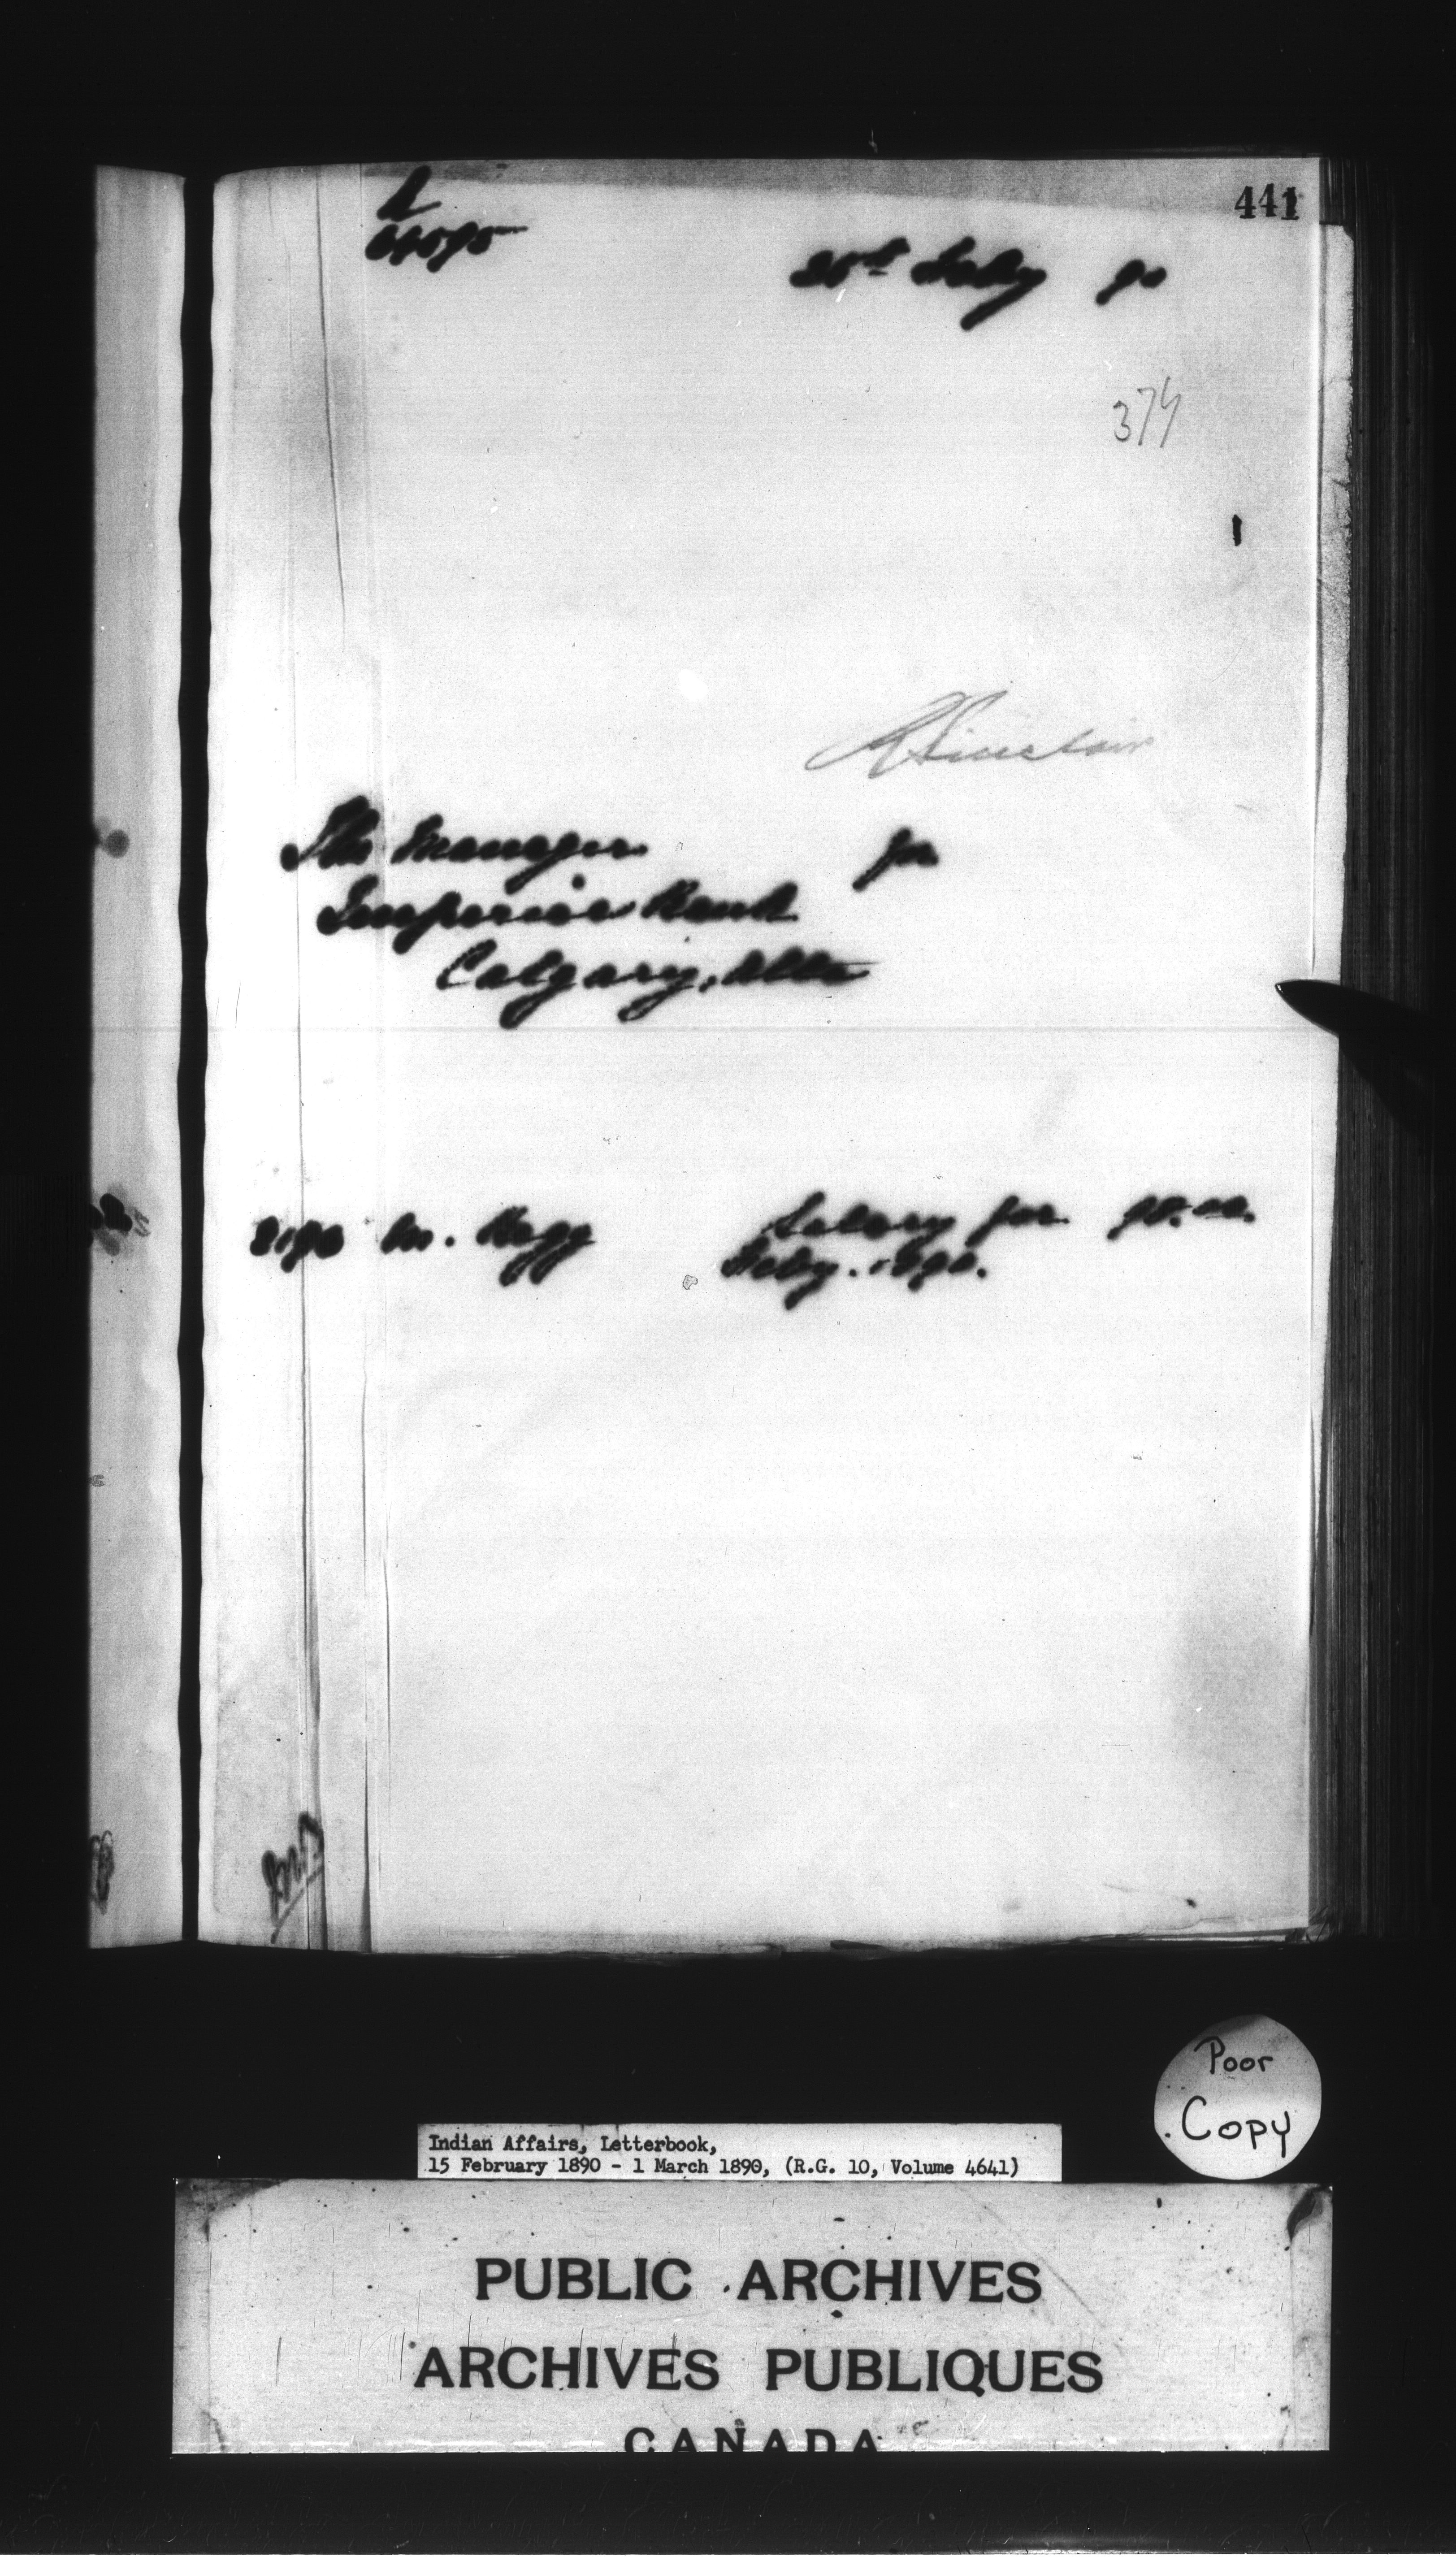 441
L
64595
28th Feby 90
374
R Sinclair
The Manager for
Imperial Bank
Calgary, Alta
M. Begg Salary for
Feby. 1890.
Poor
Copy
Indian Affairs, Letterbook,
15 February 1890 - 1 March 1890, (R.G. 10, Volume 4641)
PUBLIC ARCHIVES
ARCHIVES PUBLIQUES
CANADA